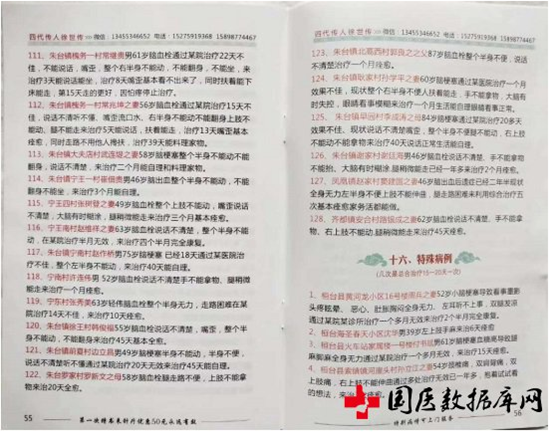 四代传人徐世传 微信：13455346682 电话：15275919368 15898774467
111、朱台镇槐务一村常继贵男61岁脑血栓通过某院治疗22天不
佳，不能说话，嘴歪，整个右半身不能动，不能翻身，不能坐，来
治疗3天能说话能坐，治疗8天嘴歪基本看不出来了，同时扶着能下
床能走，第15天走的更好，因怕疼停止治疗。
112、朱台镇槐务一村常兆坤之妻56岁脑血栓通过某院治疗15天不
佳，说话不清听不懂、嘴歪流口水、右半身不能动不能翻身上肢不
能动，腿不能走来治疗5天能说话，扶着能走，治疗13天嘴歪基本
痊愈，同时走路不用他人搀扶，治疗39天能料理家物。
113、朱台镇大夫店村武连堤之妻58岁脑梗塞整个半身不能动不能
翻身，说话不清楚，来治疗二个月能自理和料理家物。
114、朱台镇宁王一村崔佃贵男脑出血整个半身不能动，不能翻
身，来治疗3个月能自理。
115、宁王四村张树登之妻49岁脑梗塞整个上肢不能动，嘴歪说话
不清楚，大脑有时糊涂，腿稍微能走来治疗三个月基本痊愈。
116、宁王南村赵维祥之妻64岁脑梗塞说话不清楚，整个半身不能
动，在某院治疗半月无效，来治疗四个半月完全康复。
117、朱台镇宁王南村赵作桥男75岁脑梗塞 已经18天通过某医院治
疗不佳，整个左半身不能动，来治疗40天能自理。
118、宁南村许连伟男 52岁脑血栓说话不清楚手不能拿物，腿稍微
能走来治疗一个月痊愈。
119、宁东村张秀英63岁轻伟脑血栓整个半身无力，走路困难在某
院治疗14天不佳，来治疗10天痊愈。
120、朱台镇徐王村韩俊福55岁脑血栓说话不清楚，嘴歪，整个半
身不能动，不能翻身来治疗45天能全愈。
121、朱台镇前夏村边立昌男49岁脑梗塞半身不能动，半身不佳，
说话不清楚通过某院治疗20天无效来治疗45天能自理。
122、朱台罗家村罗新文之母58岁脑血栓腿走路不便，上肢不能拿
物来治20天全愈。
55
第一次持着本针疗优惠50元永远有效
四代传人徐世传 微信：13455346682 电话：15275919368 15898774467
123、朱台镇北高西村郭良之之父87岁脑血栓整个半身不便，说话
不清楚治疗一个月痊愈。
124、朱台镇耿家村孙学平之妻60岁脑梗塞通过某医院治疗一个月
效果不佳，现状整个右半身不便人扶着能走，手不能拿物，大脑有
时失控，眼睛看事模糊来治疗一个月生活能自理眼睛看事正常。
125、朱台镇旱田村李成涛之母84岁脑梗塞通过某院治疗20多天
效果不佳、现状说话不清楚嘴歪，腿没劲不能动不能翻身，右上肢
不能动不能拿物来治疗40天说话正常生活能自理。
126、朱台镇谢家村谢廷海男66岁脑血栓说话不清楚，手不能拿物
不能抬，大脑有时糊涂，腿稍微能走已经一年多来治疗2个月痊愈。
127、凤凰镇赵家村贾建国之妻46岁脑出血后遗症已经二年半现状
全身无力左半身不便上肢不能伸曲，腿走路困难来利用综合治疗五
次基本痊愈家务活都能做。
128、齐都镇安合村路银成之妻62岁脑血栓说话不清楚，手不能拿
物，全身无力来治疗45天痊愈。
十六、特殊病例
（几次量治治疗15－20天一次）
1、桓台县黄河龙小区16号楼周兵之妻52岁小脑梗塞导致看事覆影
头疼眩晕、恶心、肚胀胸闷全身无力，左耳听不上事，双腿发凉
通过某某诊所治疗一个多月无效来治疗2个半月完全康复。
2、桓台海圣春天小区沈华男39岁左上肢手麻来治疗6天痊愈
3、桓台县火车站家属楼一号楼何书英65岁脑梗塞血糖高导致眼
麻脚麻全身无力通过某院治疗一个多月无效，来治疗15天痊愈。
4、桓台县索镇镇河崖头村孙立江男54岁颈椎痛，双肩双痛，双
上肢痛，右上肢不能伸曲通过多处治疗无效已经一年多，抱着试试看
56
特别病情可上门服务
国医数据库网